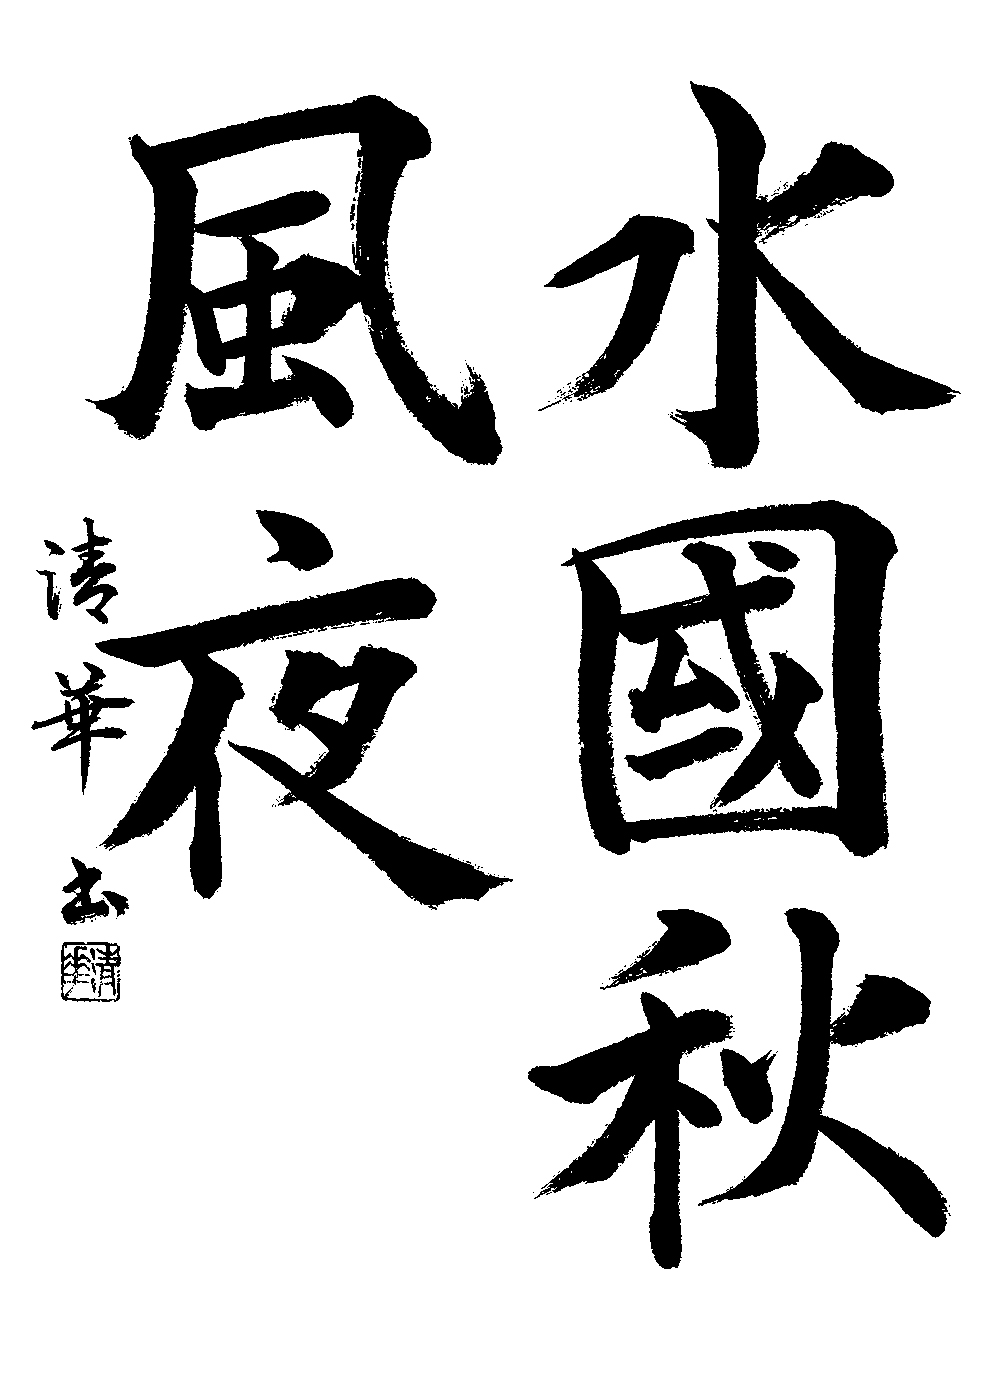 水國秋
風夜
清華書
清華